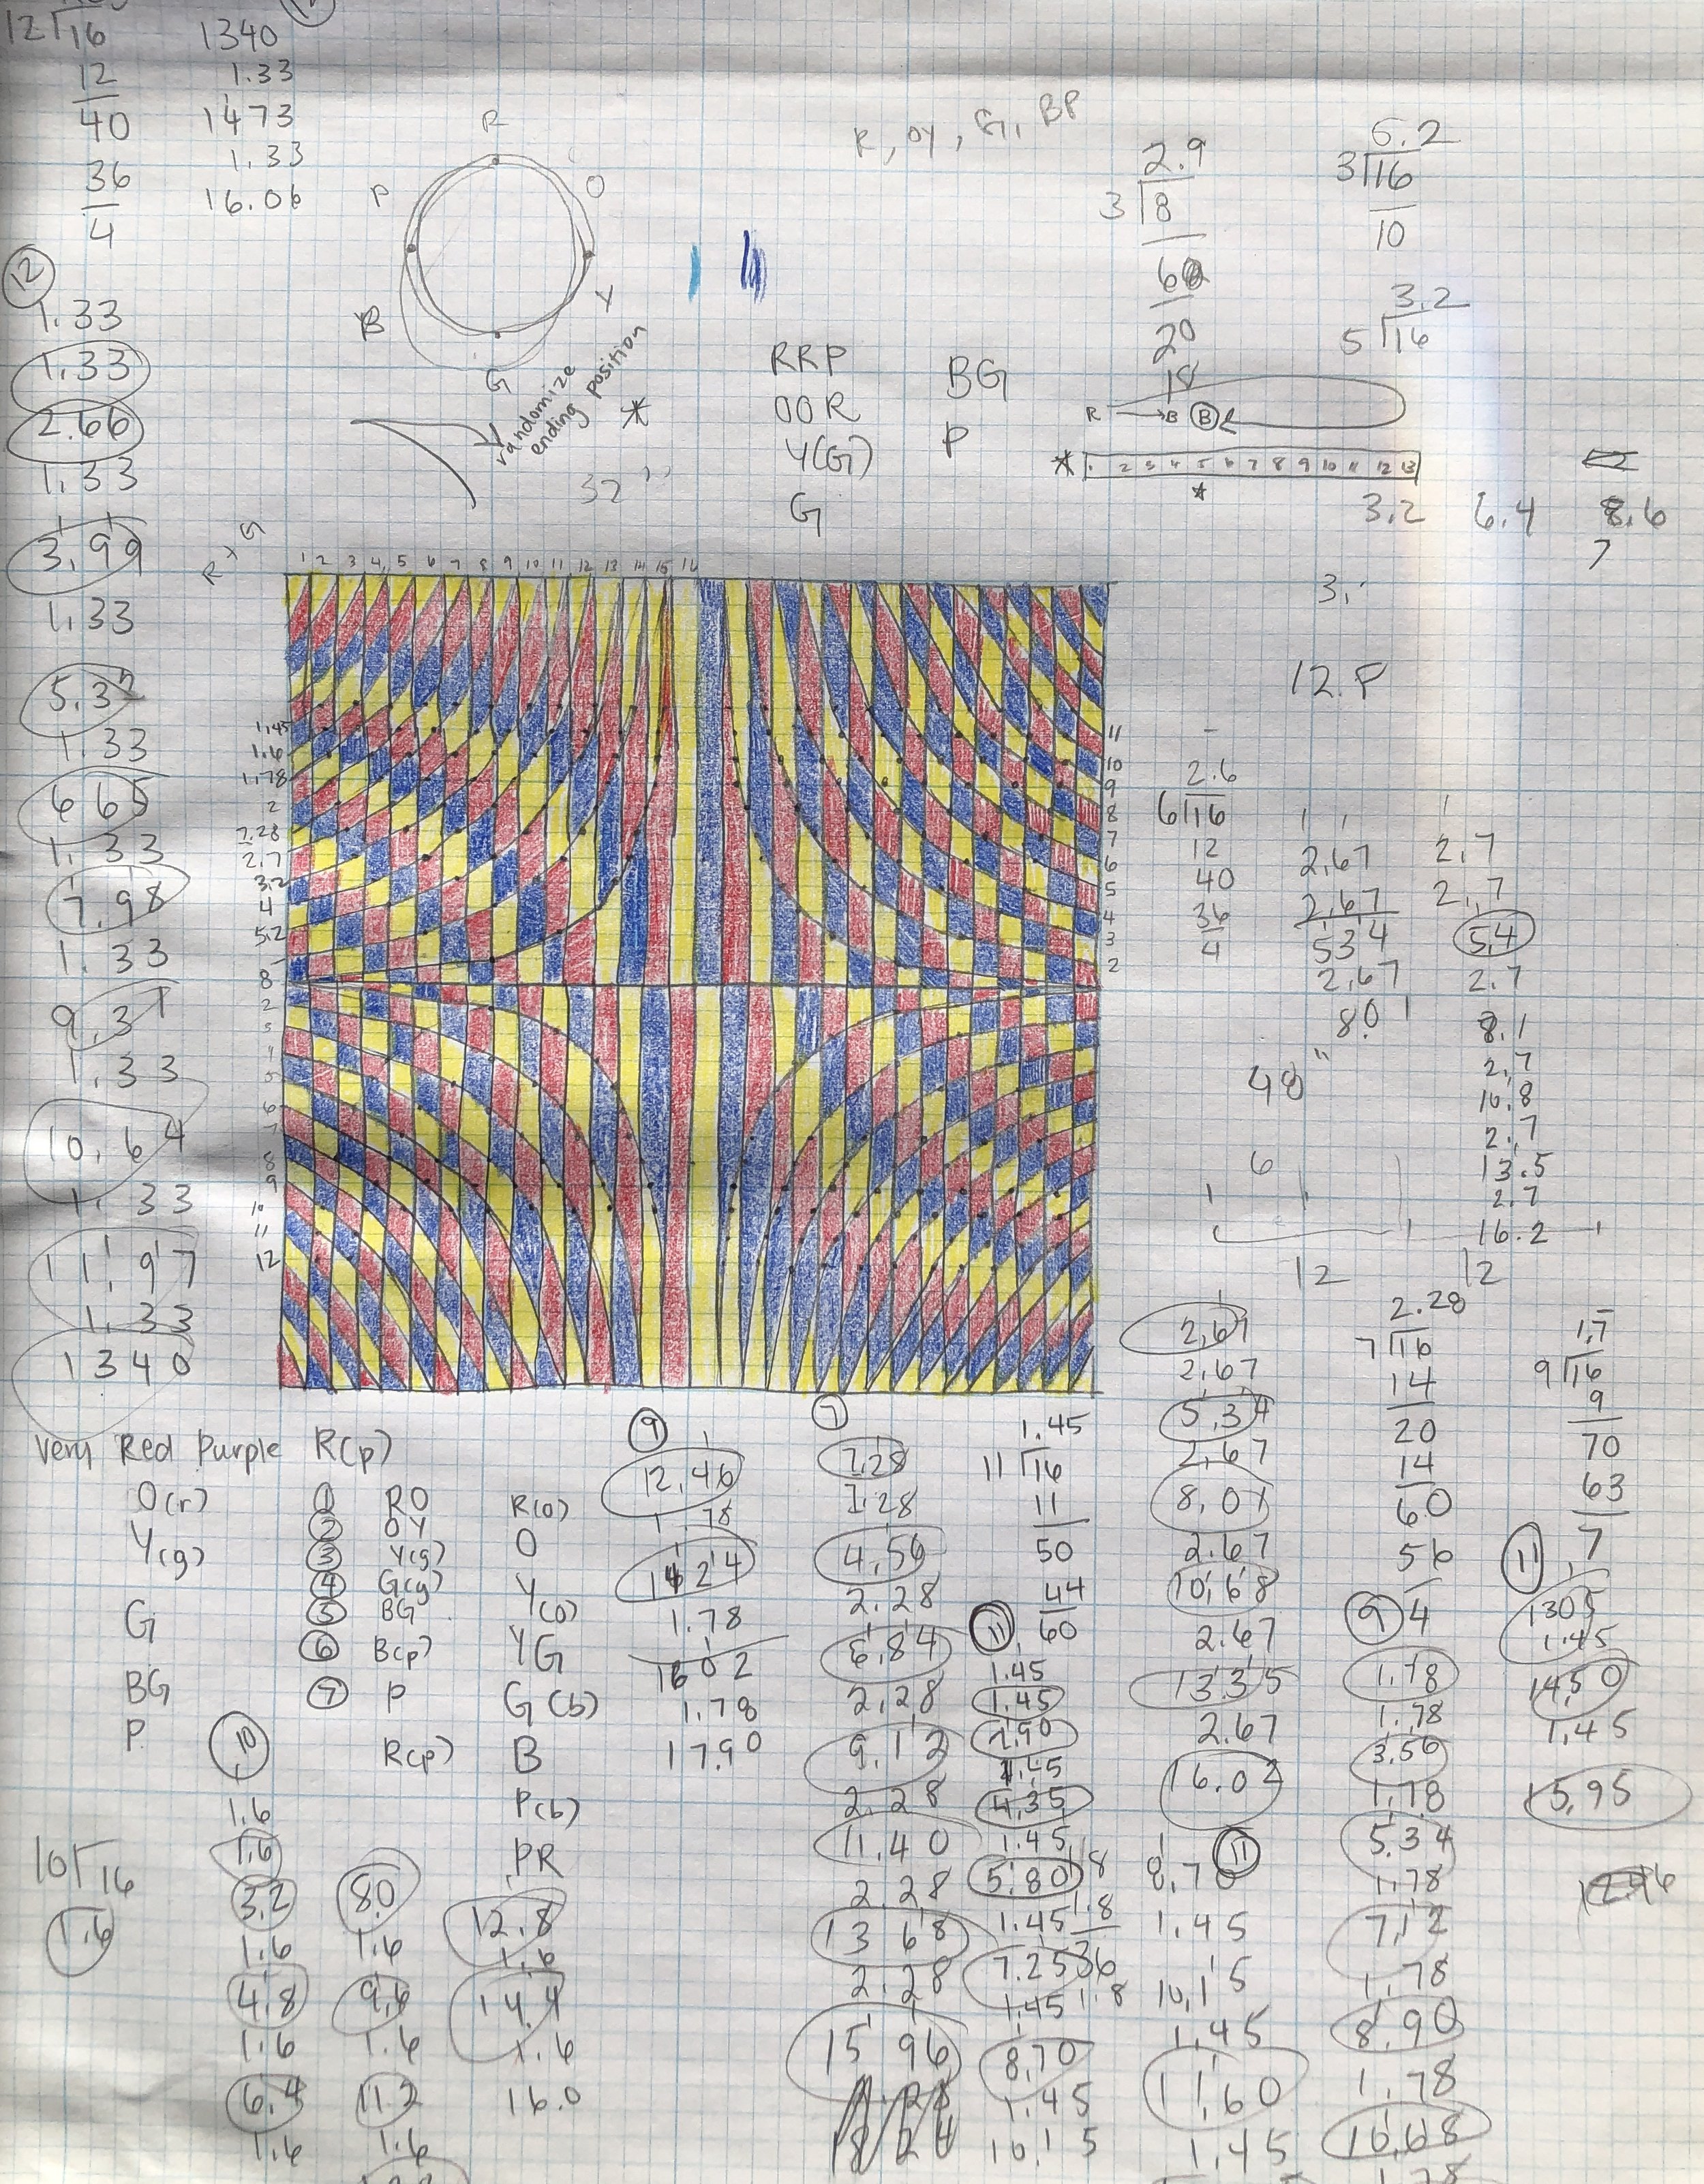 12 16
12
40
36
4
1340
1.33
1473
1.33
16.06
12
1.33
1.33
2.66
1.33
3.99
1.33
5.32
1.33
6 65
1.33
7.98
1.33
9.31
1.33
10.64
1.33
11.97
1.33
1340
R
O
Y
G
B
P
randomize
ending position
*
32"
R, OY, G, BP
RRP
OOR
Y(G)
G
BG
P
2.9
3 8
60
20
18
5.2
3 16
10
3.2
5 16
R B B
* 1 2 3 4 5 6 7 8 9 10 11 12 13
*
3.2 6.4 8.6
7
3.
12.P
R Y G
1 2 3 4 5 6 7 8 9 10 11 12 13 14 15 16
1.45
1.6
1.78
2
2.28
2.7
3.2
4
5.2
8
2
3
4
5
6
7
8
9
10
11
12
11
10
9
8
7
6
5
4
3
2
2.6
6 16
12
40
36
4
2.67
2.67
5 3 4
2.67
8.01
2.7
2.7
5.4
2.7
8.1
2.7
10.8
2.7
13.5
2.7
16.2
48"
6
12
12
Very Red Purple R(p)
O(r)
Y(g)
G
BG
P
1 RO
2 OY
3 Y(g)
4 G(y)
5 BG
6 B(p)
7 P
R(p)
R(o)
O
Y(o)
YG
G(b)
B
P(b)
PR
9
12.46
1.78
14 24
1.78
16 02
1.78
17.90
7
2.28
2.28
4.56
2.28
6.84
2.28
9.12
2.28
11.40
2.28
13 68
2.28
15 96
1.45
11 16
11
50
44
60
11
1.45
1.45
2.90
1.45
4.35
1.45
5.80
1.45
7.25
1.45
8.70
1.45
10.15
1.8
1.8
36
1.8
2.67
2.67
5.34
2.67
8.01
2.67
10.68
2.67
13.35
2.67
16.02
11
8.70
1.45
10.15
1.45
11.60
1.45
2.28
7 16
14
20
14
60
56
4
9
1.78
1.78
3.56
1.78
5.34
1.78
7.12
1.78
8.90
1.78
10.68
1.78
1.7
9 16
9
70
63
7
11
1305
1.45
14.50
1.45
15.95
10 16
1.6
10
1.6
1.6
3.2
1.6
4.8
1.6
6.4
1.6
8.0
1.6
9.6
1.6
11.2
1.6
12.8
1.6
14.4
1.6
16.0